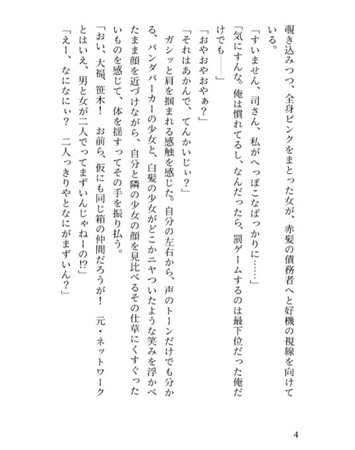 覗き込みつつ、全身ピンクをまとった女が、赤髪の債務者へと好機の視線を向けて
いる。
「すいません、司さん、私がへっぽこなばっかりに……」
「気にすんな。俺は慣れてるし、なんだったら、罰ゲームするのは最下位だった俺だ
けでも――」
「おやおやおやぁ？」
「それはあかんで、てんかいじぃ？」
ガシッと肩を掴まれる感触を感じた。自分の左右から、声のトーンだけでも分か
る、パンダパーカーの少女と、白髪の少女がどこかニヤついたような笑みを浮かべ
たまま顔を近づけながら、自分と隣の少女の顔を見比べるその仕草にくすぐった
いものを感じて、体を揺すってその手を振り払う。
「おい、大福、笹木！　お前ら、仮にも同じ箱の仲間だろうが！　元・ネットワーク
とはいえ、男と女が二人でってまずいんじゃねーの!?」
「えー、なになにぃ？　二人っきりやとなにがまずいん？」
4